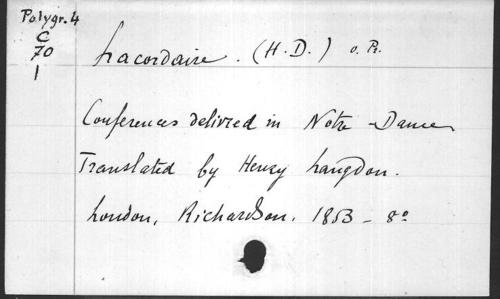 Polygr. 4
C
70
1
Lacordaire. (H. D.) o. Pr.
Conferences delivred in Notre-Dame
Translated by Henry Langdon.
London, Richardson. 1853 - 8°